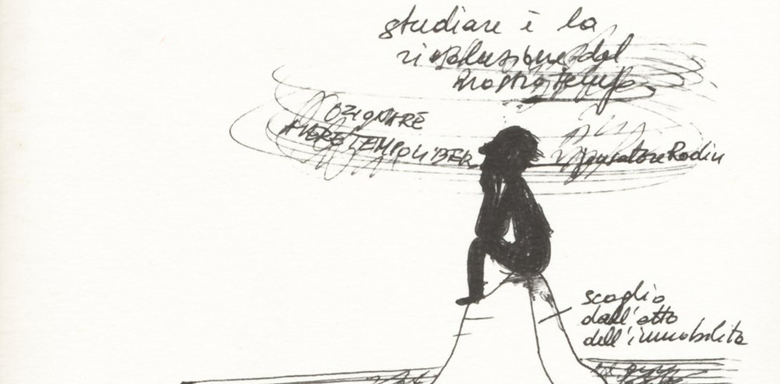 studiare è la
rivoluzione del
nostro tempo
OZIONARE
AVERE TEMPO LIBER
pensatore Rodin
scoglio
dall'atto
dell'immobilità